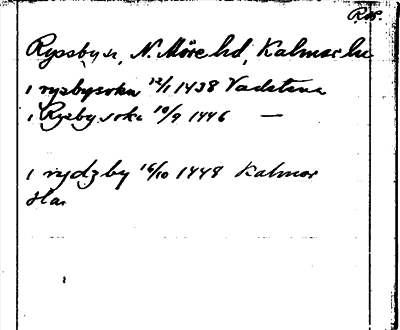 Ryssby sn, N. Möre hd, Kalmar ln
i rysbysokn 12/1 1438 Vadstena
i Rysby sokn 10/9 1446 —
i rydzby 16/10 1448 Kalmar